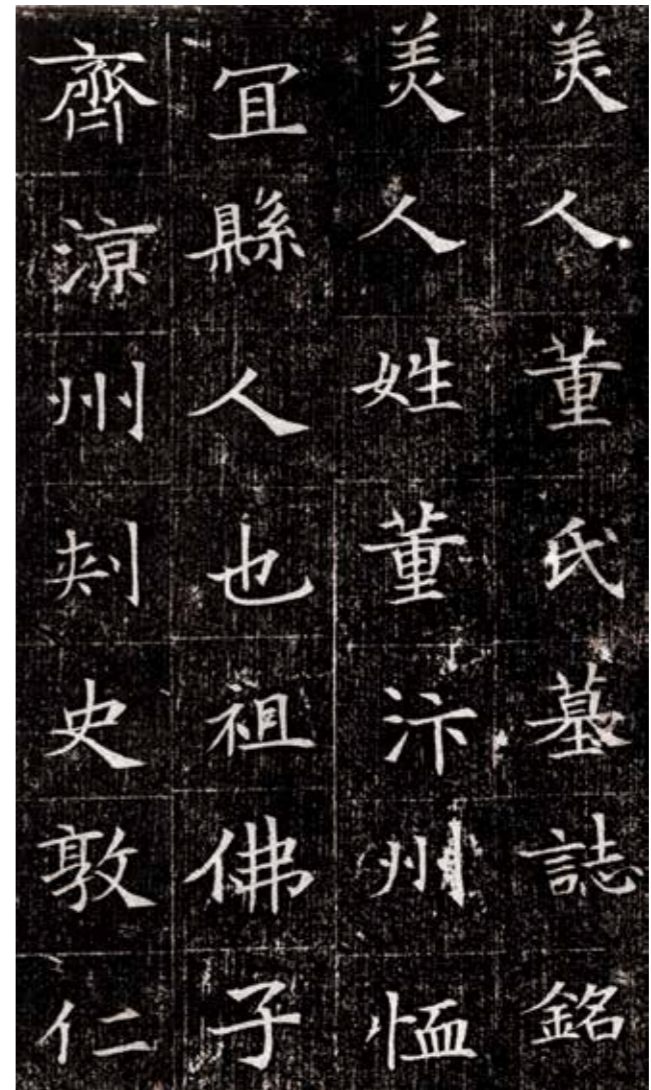 美人董氏墓誌銘
美人姓董汴州恤
冝縣人也祖佛子
齊涼州刺史敦仁